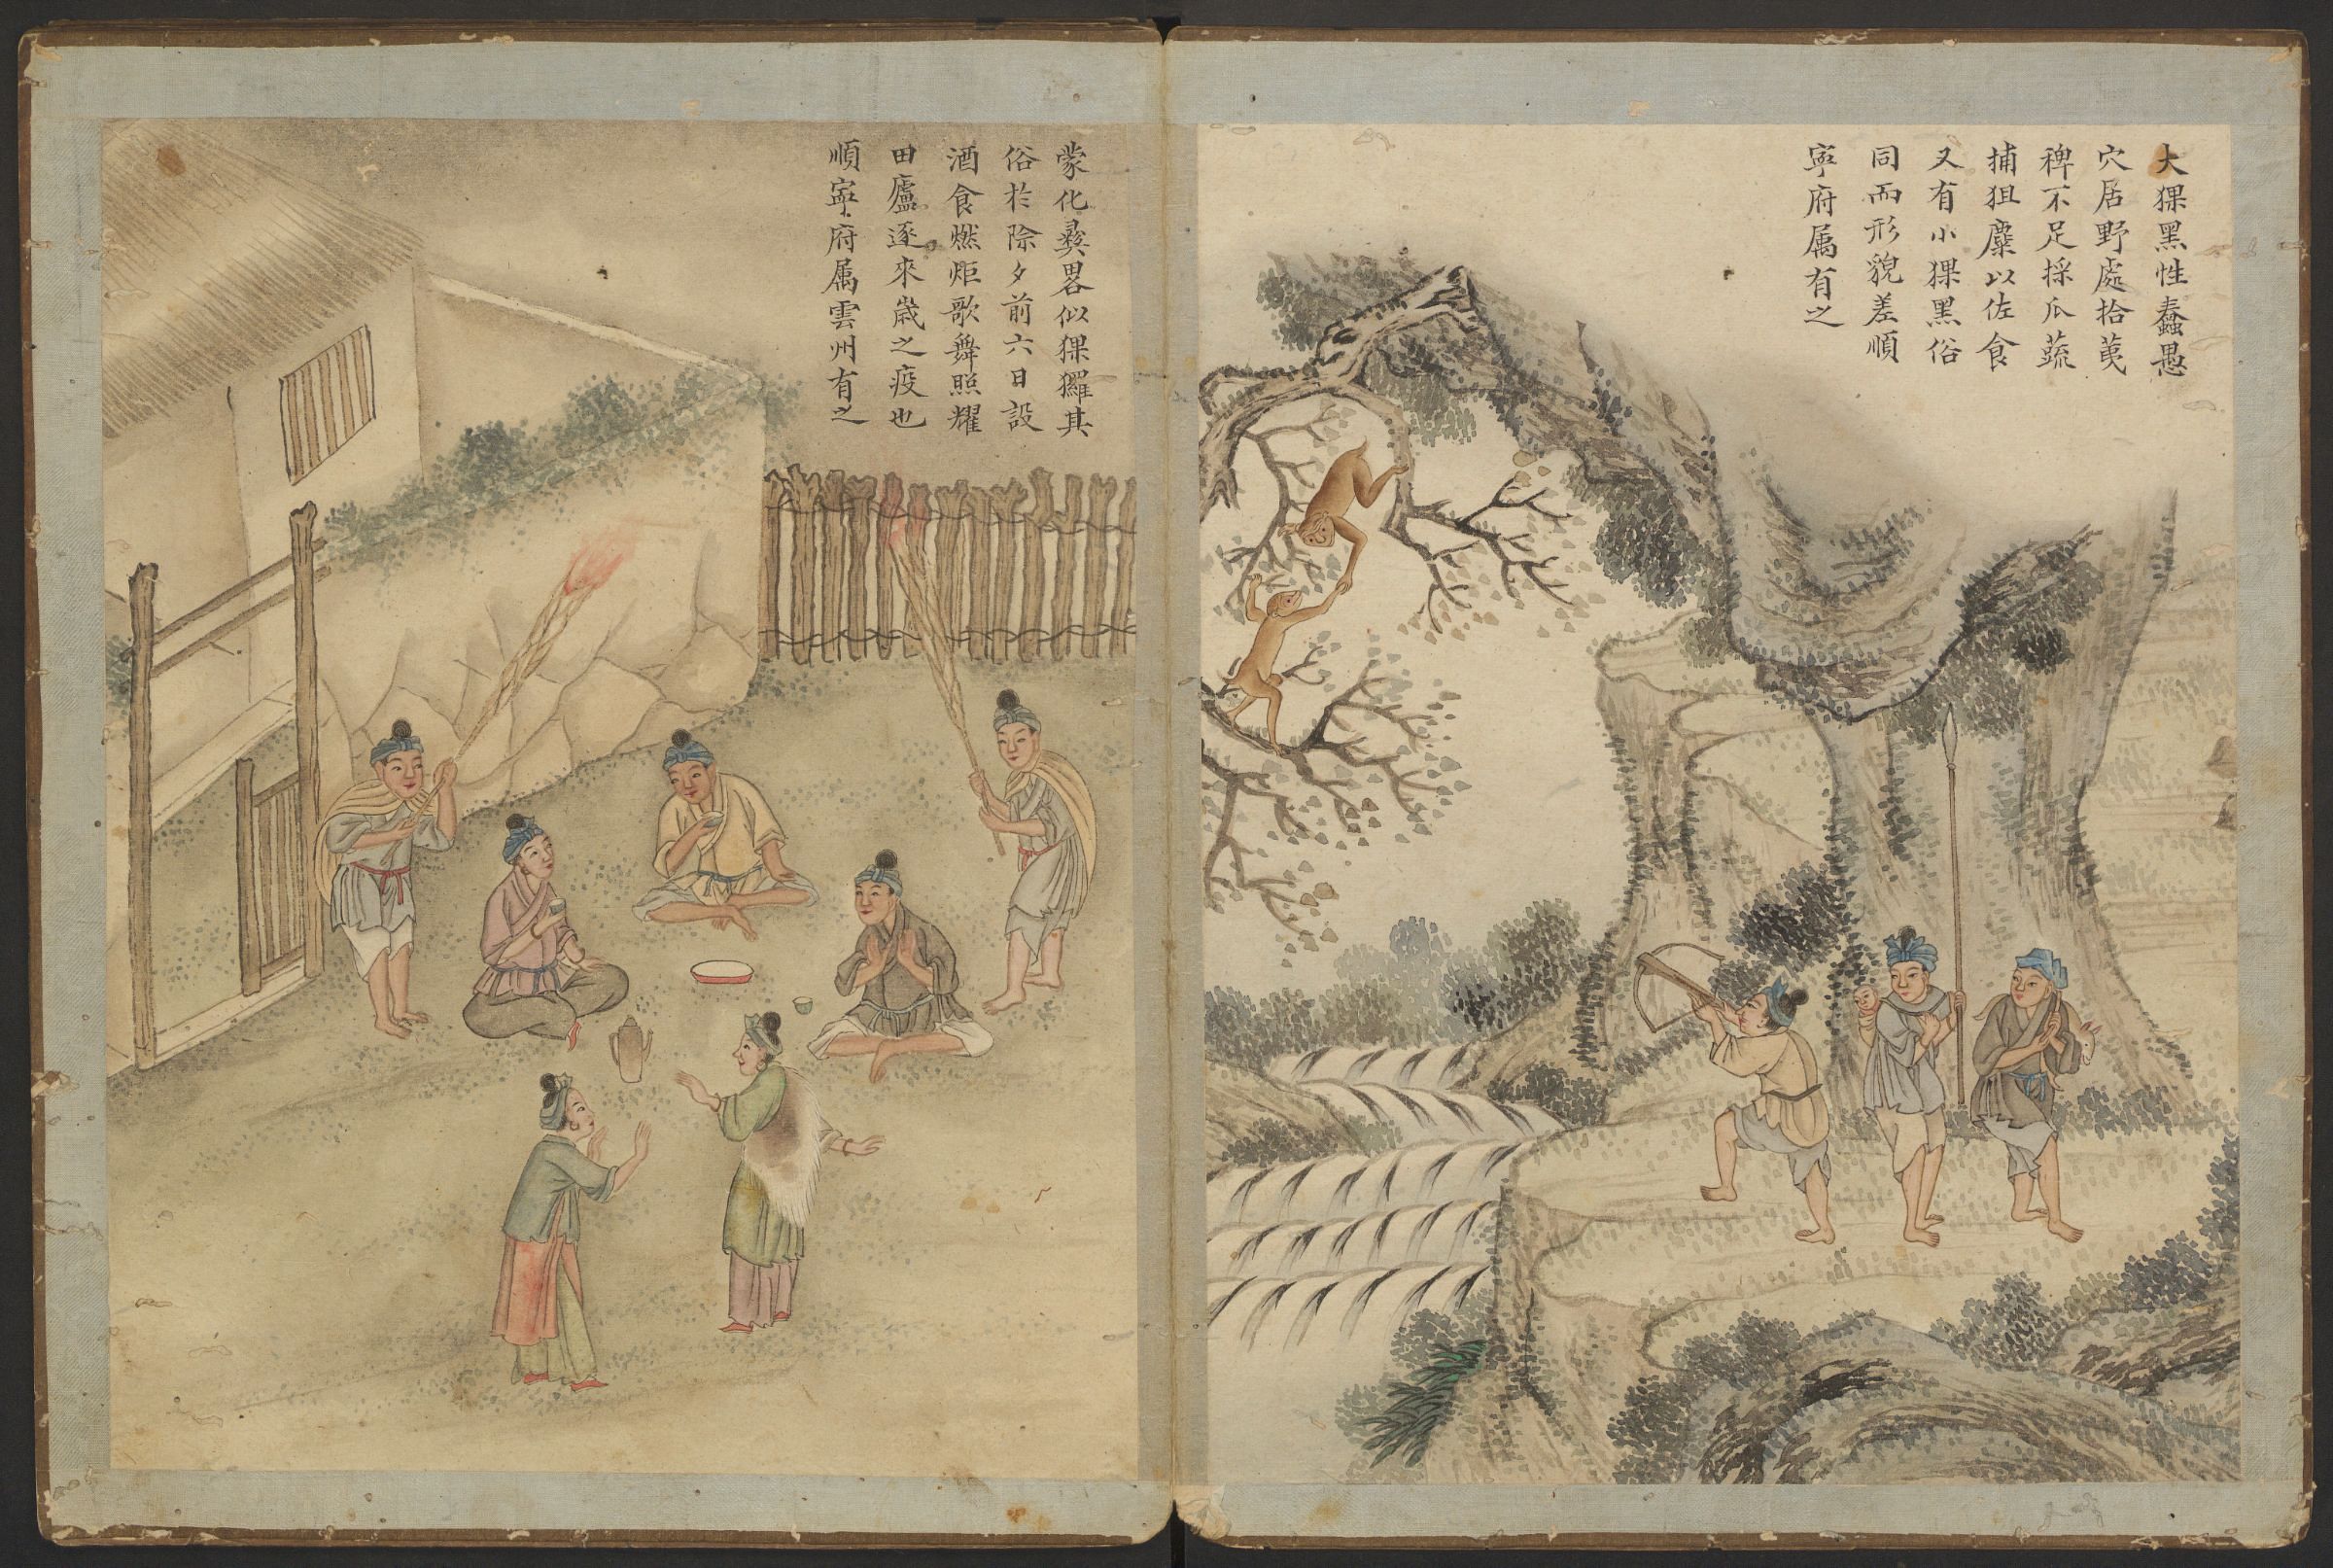 大猓黑性蠢愚
穴居野處拾荑
稗不足採瓜蔬
捕狙麋以佐食
又有小猓黑俗
同而形貌差順
寧府属有之
蒙化彝畧似猓玀其
俗扵除夕前六日設
酒食燃炬歌舞照耀
田廬逐來嵗之疫也
順寧府属雲州有之